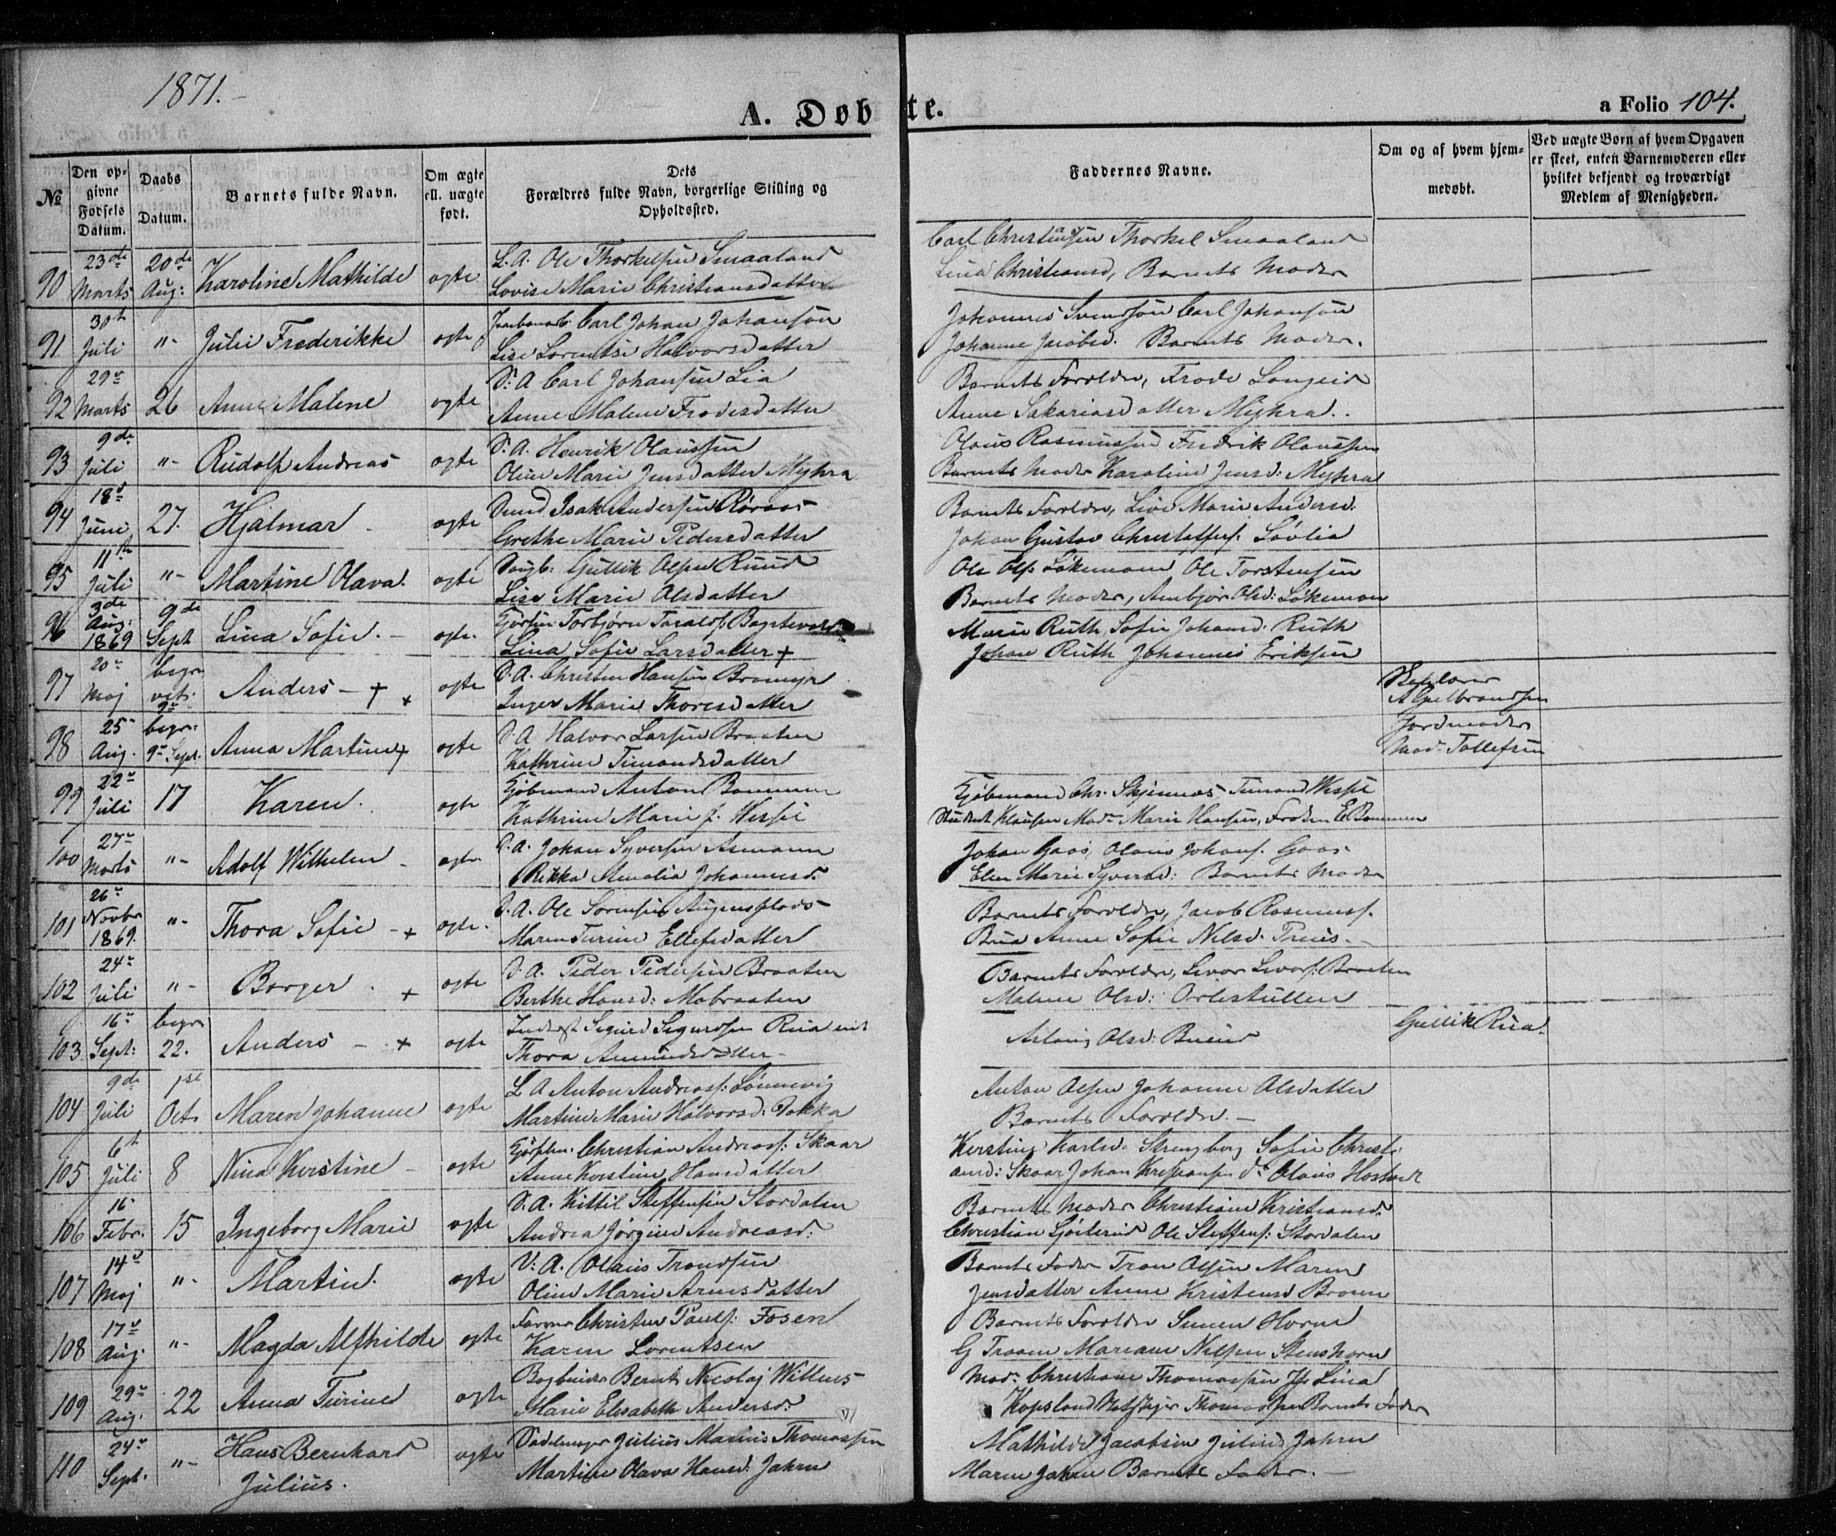 1871.
A. Døbte.
a Folio 104.
No
Den opgivne Fødsels Datum.
Daabs Datum.
Barnets fulde Navn.
Om ægte ell. uægte født.
Dets Forældres fulde Navn, borgerlige Stilling og Opholdssted.
Faddernes Navne.
Om og af hvem hjemmedøbt.
Ved uægte Børn af hvem Opgaven er skeet, enten Barnemoderen eller hvilket bekjendt og troværdigt Medlem af Menigheden.
90 23de Marts 20de Aug: Karoline Mathilde ogte
L. A. Ole Thorkelsen Smaaland
Lovise Marie Christiansdatter
Carl Christensen Thorkel Smaaland
Lina Christiansd, Barnets Moder
91 30t Juli "- Julie Frederikke ogte
Carl Johan Johansøn
Lise Lorentse Halvorsdatter
Johannes Svendsøn Carl Johansøn
Johanne Jacobsd. Barnets Moder.
92 29de Marts 26 Anne Malene ogte
D: A Carl Johansen Lia
Anne Malene Frodesdatter
Barnets Foroldre, Frode Langeid
Anne Sakariasdatter Myhra.
93 9de Juli "- Rudolf Andreas ogte
D. A. Henrik Olaussen
Oline Marie Jensdatter Myhra
Olaus Rasmussen Fredrik Olaussen
Barnets Moder Karoline Jensd: Myhra
94 18d Juni 27. Hjalmar ogte
Isak Andersen Røraas
Grethe Marie Pedersdatter
Barnets Foroldre, Live Marie Andersd.
Johan Gustav Christoffers. Løvlia
95 11te Juli "- Martine Olava. ogte
Gullik Olsen Ruud
Lise Marie Olsdatter
Ole Ols. Løkemoen Ole Torstensen
Barnets Moder, Anbjør Olsd: Løkemoen
96 3de Aug: 1869 9de Sept Lina Sofie. ogte.
Torbjørn Taralds.
Lina Sofie Larsdatter +
Marie Ruth, Sofie Johansd: Ruth
Johan Ruth Johannes Eriksen
97 20de Maj Anders - + + ogte
D. A. Christen Hansen
Inger Marie Thoresdatter
98 25de Aug. begr: 9de Sept. Anna Martine + ogte
D A Halvor Larsen Braaten
Kathrine Timandsdatter
Jordmoder
Mad. Tollefsen
99 22de Juli 17 Karen. ogte
Kjøbmand Anton Bommen
Kathrine Marie f. Wessel
Kjøbmand Chr. Skjennes Timand Wessel
Klausen Mad. Marie Hansen, Frøken E Bommen
100 27de Marts "- Adolf Wilhelm ogte
D. A. Johan Syversen Aamann
Rikka Amalia Johannesd.
Johan Gaas, Olaus Johans. Gaas
Elen Marie Syversd: Barnets Moder
101 26de Novbr 1869. "- Thora Sofie - + ogte.
D. A. Ole Sørensen Augensplads
Maren Turine Ellefsdatter
Barnets Foroldre, Jacob Rasmuss.
Bua Anne Sofie Nilsd.
102 24de Juli "- Borger. + ogte
D. A. Peder Pedersen Braaten
Berthe Hansd: Mobraaten
Barnets Foroldre, Sivor Sivors. Braaten
Malene Olsd:
103 16de Sept: begr 22. Anders - + ogte
Inderst Sigurd Sigurdsen Rua
Thora Amundsdatter
Aslaug Olsd:
Gullik Rua.
104 9de Juli 1ste Oct. Maren Johanne ogte
L A Anton Andreass: Lønnevig
Martine Marie Halvorsd: Bokka
Anton Olsen Johanne Olsdatter
Barnets Foroldre.
105 6t Juli 8 Nina Kerstine ogte
Christian Andreass. Skaar
Anne Kerstine Hansdatter
Kerstine Karlsd. Strengberg Sofie Christi
ansd: Skaar Johan
106 16 Febr. 15 Ingeborg Marie ogte
D. A. Kittil Steffensen Stordalen
Andrea Jørgine Andreasd:
Barnets Moder Christiane Kristiansd.
Christian Ole Steffens: Stordalen
107 14d Maj "- Martin. ogte
D: A. Olaus Trondsen
Oline Marie Arnesdatter
Barnets Fader Tron Olsen Maren
Jensdatter Anne Kristensd
108 17d Aug. "- Magda Alfhilde ogte
Farver Christen Pauls: Fosen
Karen Lorentsen
Barnets Foroldre
G Trosen Mariane Nilsen Stenshorn
109 29de Aug. 22 Anna Turine ogte
Bogbinder Bernt Nicolaj
Marie Elisabeth Andersd.
Mad: Christiane Thomassen
Thomassen Barnets Fader
110 24de Sept. "- Hans Bernhard Julius. ogte
Sadelmager Julius Marius Thomassen
Martine Olava Hansd. Jahren
Mathilde Jacobsen Julius Jahren
Maren Jahren Barnets Fader.